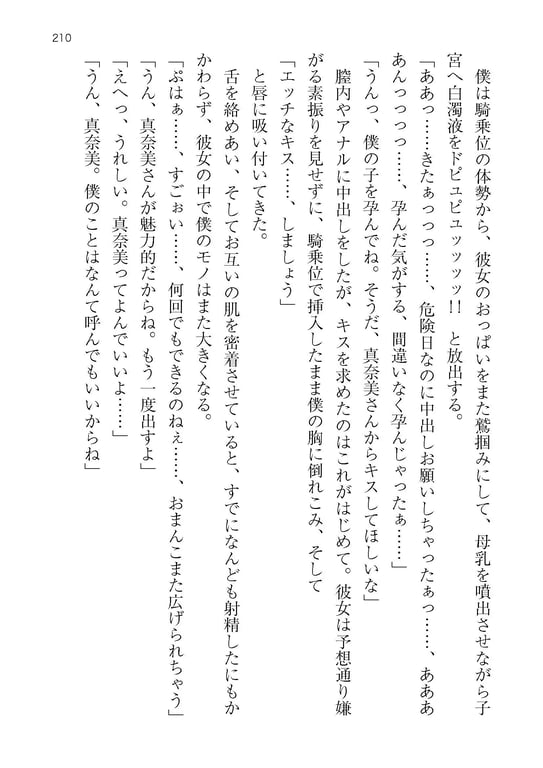 210
僕は騎乗位の体勢から、彼女のおっぱいをまた鷲掴みにして、母乳を噴出させながら子
宮へ白濁液をドピュピュッッッッ!! と放出する。
「ああっ……きたぁっっっ……、危険日なのに中出しお願いしちゃったぁっ……、あああ
あんっっっっ……、孕んだ気がする、間違いなく孕んじゃったぁ……」
「うんっ、僕の子を孕んでね。そうだ、真奈美さんからキスしてほしいな」
膣内やアナルに中出しをしたが、キスを求めたのはこれがはじめて。彼女は予想通り嫌
がる素振りを見せずに、騎乗位で挿入したまま僕の胸に倒れこみ、そして
「エッチなキス……、しましょう」
と唇に吸い付いてきた。
舌を絡めあい、そしてお互いの肌を密着させていると、すでになんども射精したにもか
かわらず、彼女の中で僕のモノはまた大きくなる。
「ぷはぁ……、すごぉい……、何回でもできるのねぇ……、おまんこまた広げられちゃう」
「うん、真奈美さんが魅力的だからね。もう一度出すよ」
「えへっ、うれしい。真奈美ってよんでいいよ……」
「うん、真奈美。僕のことはなんて呼んでもいいからね」